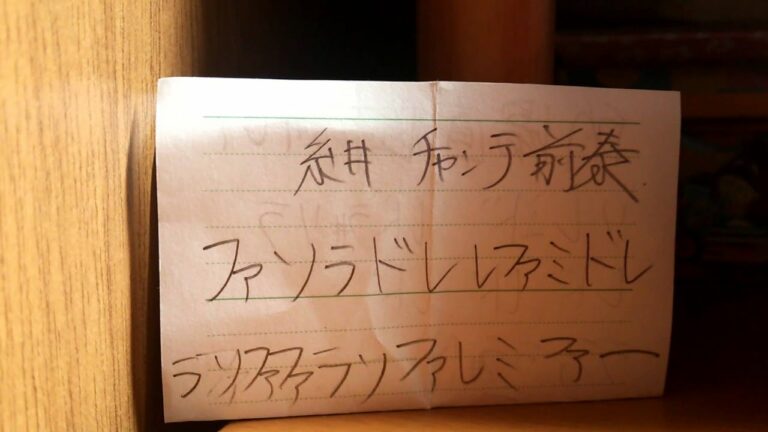 チャンテ前奏
ファソラドレレファミドレ
ラソファファラソファレミファー